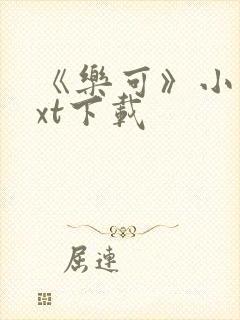 《樂可》小
xt下載
屈連